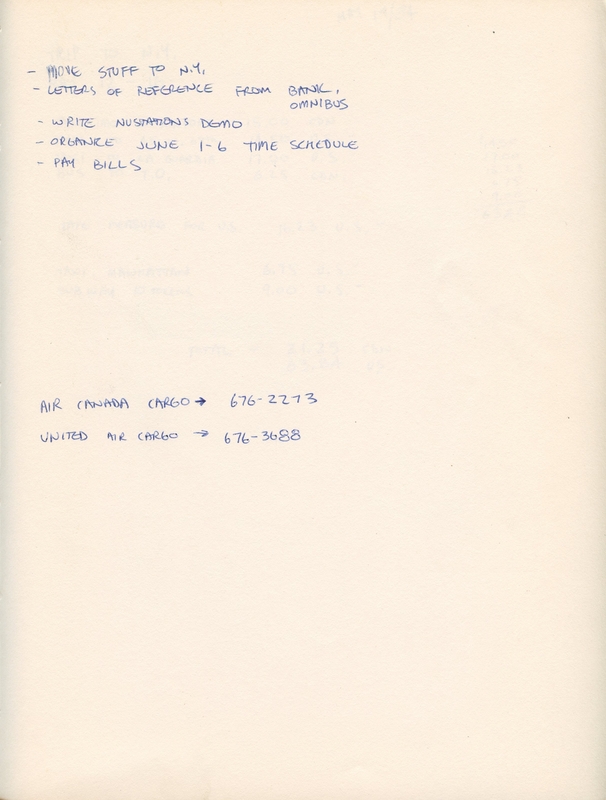 - MOVE STUFF TO N.Y.
- LETTERS OF REFERENCE FROM BANK,
OMNIBUS
- WRITE NUSTATIONS DEMO
- ORGANIZE JUNE 1-6 TIME SCHEDULE
- PAY BILLS
AIR CANADA CARGO → 676-2273
UNITED AIR CARGO → 676-3688